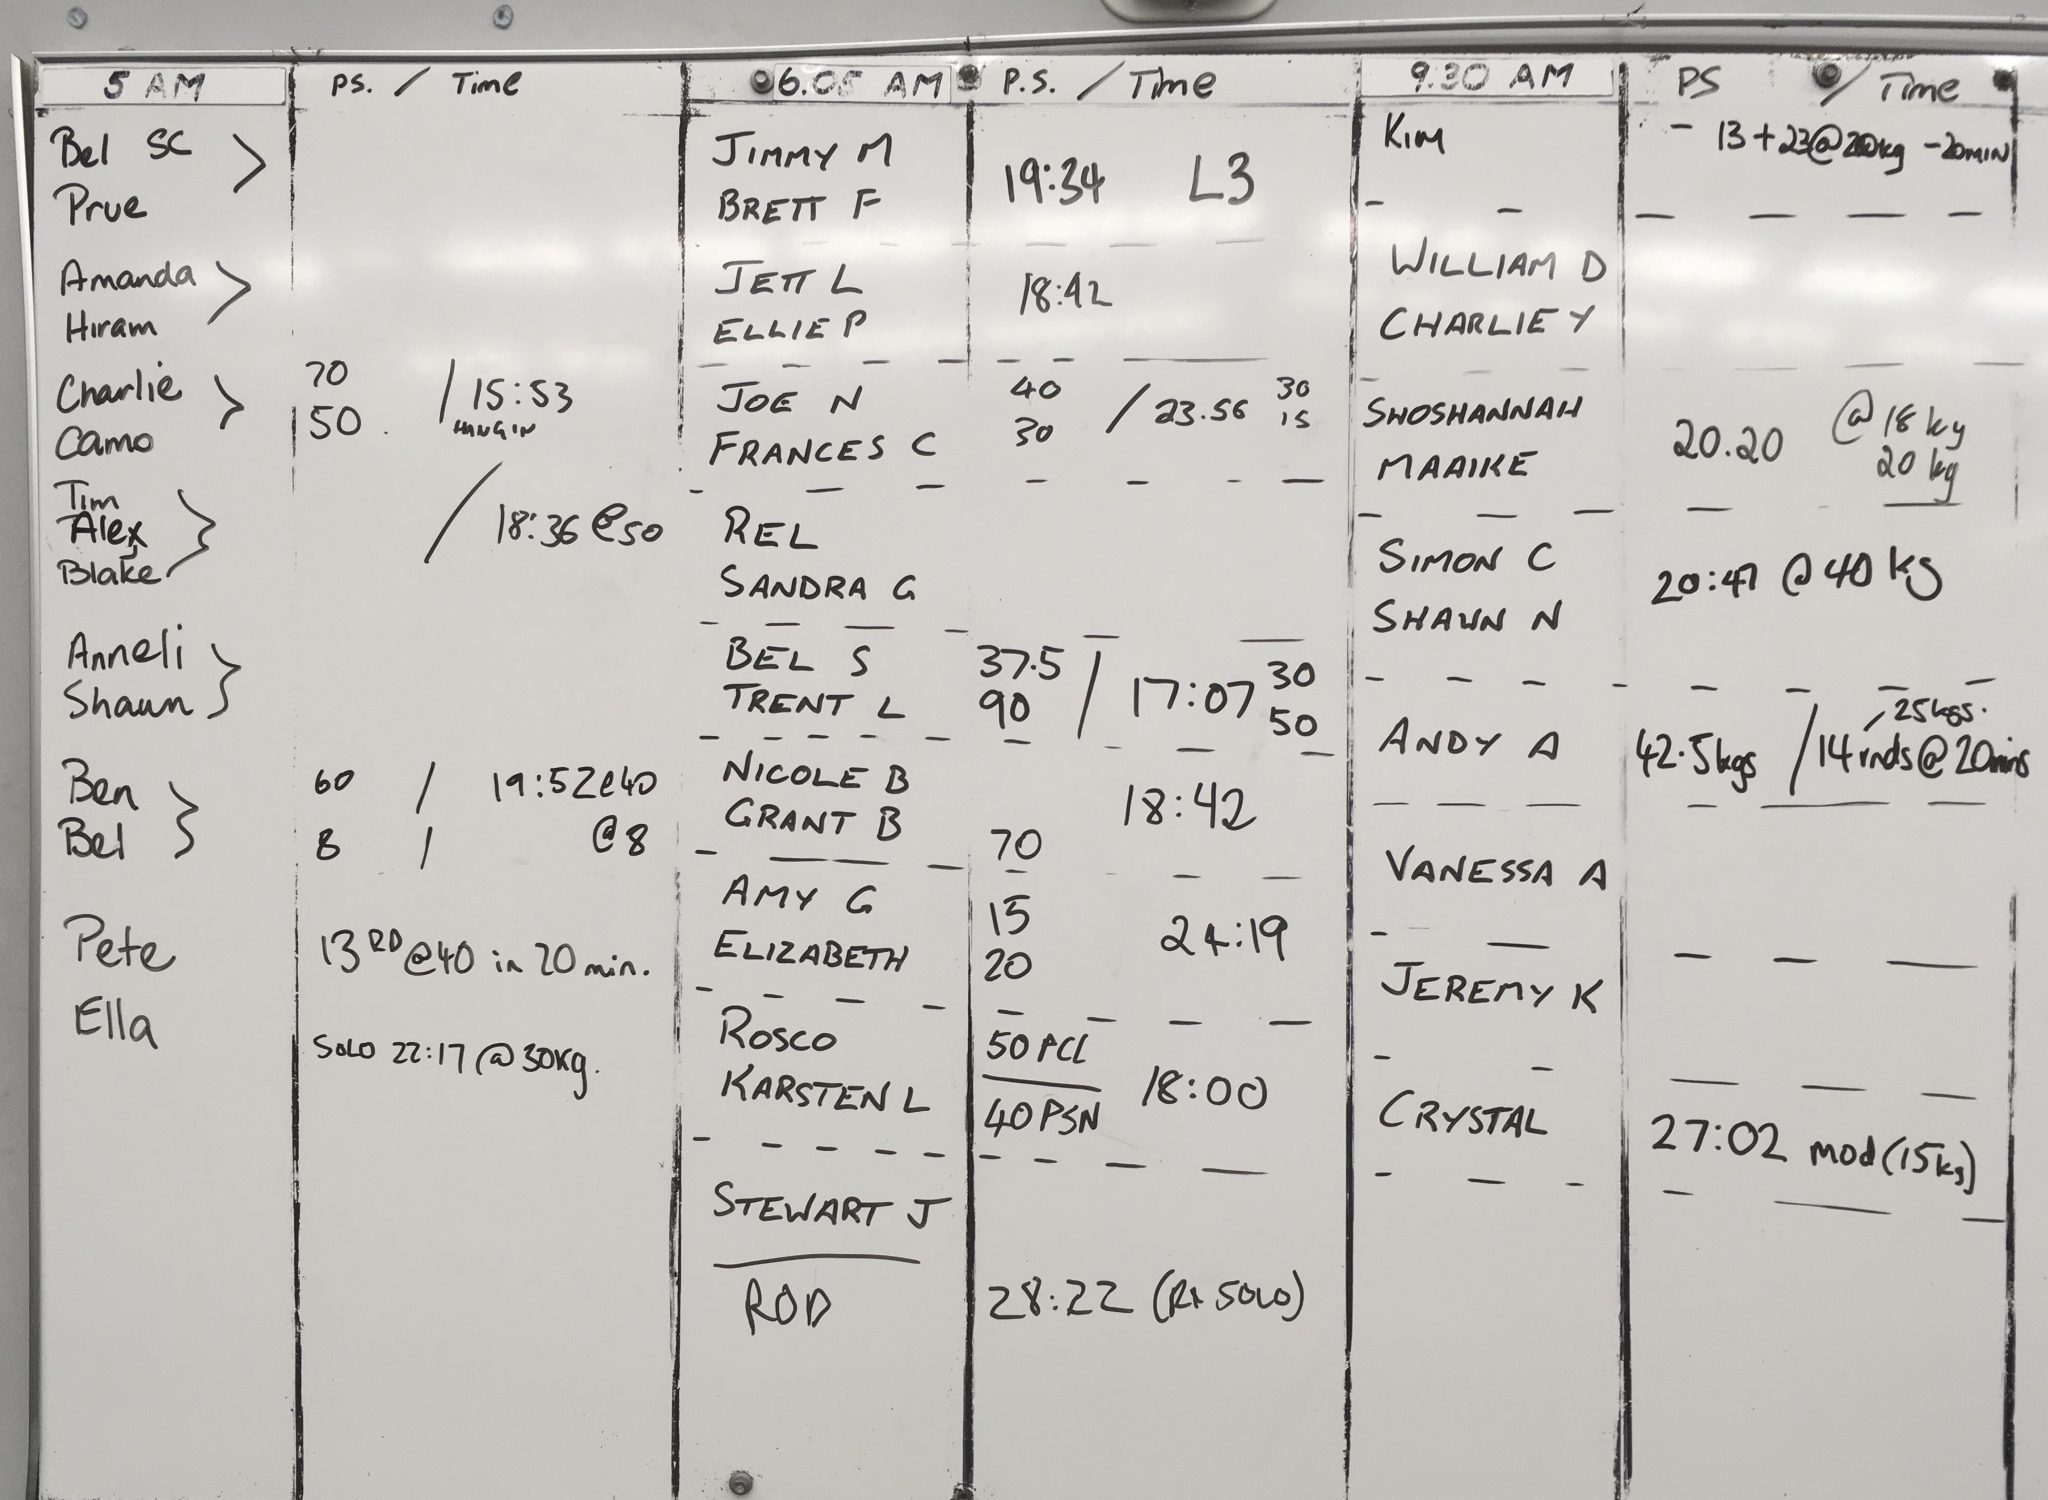 5 AM
PS. / Time
Bel SC
Prue
Amanda
Hiram
Charlie 70 / 15:53
Camo 50 HANGIN
Tim
Alex / 18:36 @50
Blake
Anneli
Shaun
Ben 60 / 19:52@40
Bel 8 / @8
Pete 13 RD @40 in 20 min.
Ella
SOLO 22:17 @ 30kg.
6.05 AM
P.S. / Time
JIMMY M
BRETT F
19:34 L3
JETT L
ELLIE P
18:42
JOE N 40 / 23.56 30
FRANCES C 30 15
REL
SANDRA G
BEL S 37.5 / 17:07 30
TRENT L 90 50
NICOLE B
GRANT B 70
18:42
AMY G 15
ELIZABETH 20
24:19
ROSCO 50 PCL
KARSTEN L 40 PSN
18:00
STEWART J
ROD 28:22 (Rx SOLO)
9.30 AM
PS / Time
KIM - 13 + 23@20kg - 20MIN
WILLIAM D
CHARLIE Y
SHOSHANNAH
MAAIKE
20.20 @ 18 kg
20 kg
SIMON C
SHAUN N
20:47 @ 40 kg
25kgs.
ANDY A 42.5kgs / 14 rnds @ 20mins
VANESSA A
JEREMY K
CRYSTAL 27:02 mod (15kg)